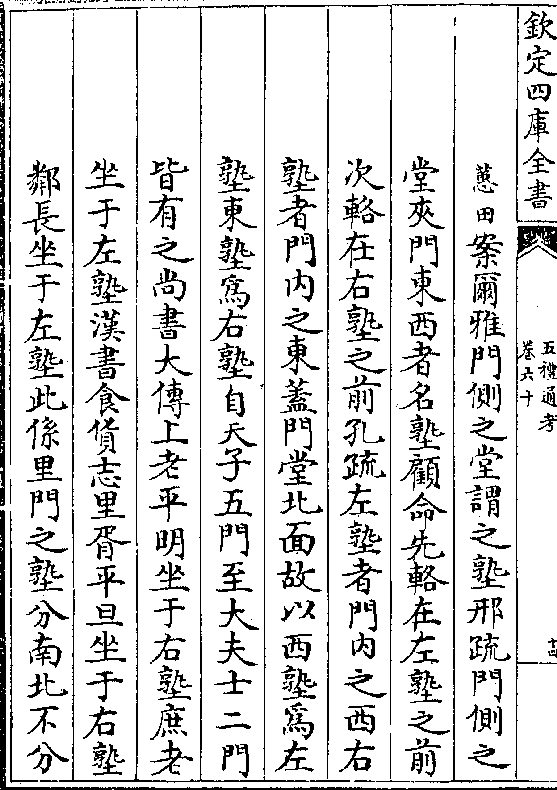 欽定四庫全書
五禮通考
卷六十
蕙田案爾雅門側之堂謂之塾邢疏門側之
堂夾門東西者名塾顧命先輅在左塾之前
次輅在右塾之前孔疏左塾者門內之西右
塾者門內之東蓋門堂北面故以西塾爲左
塾東塾爲右塾自天子五門至大夫士二門
皆有之尚書大傳上老平明坐于右塾庶老
坐于左塾漢書食貨志里胥平旦坐于右塾
鄰長坐于左塾此係里門之塾分南北不分